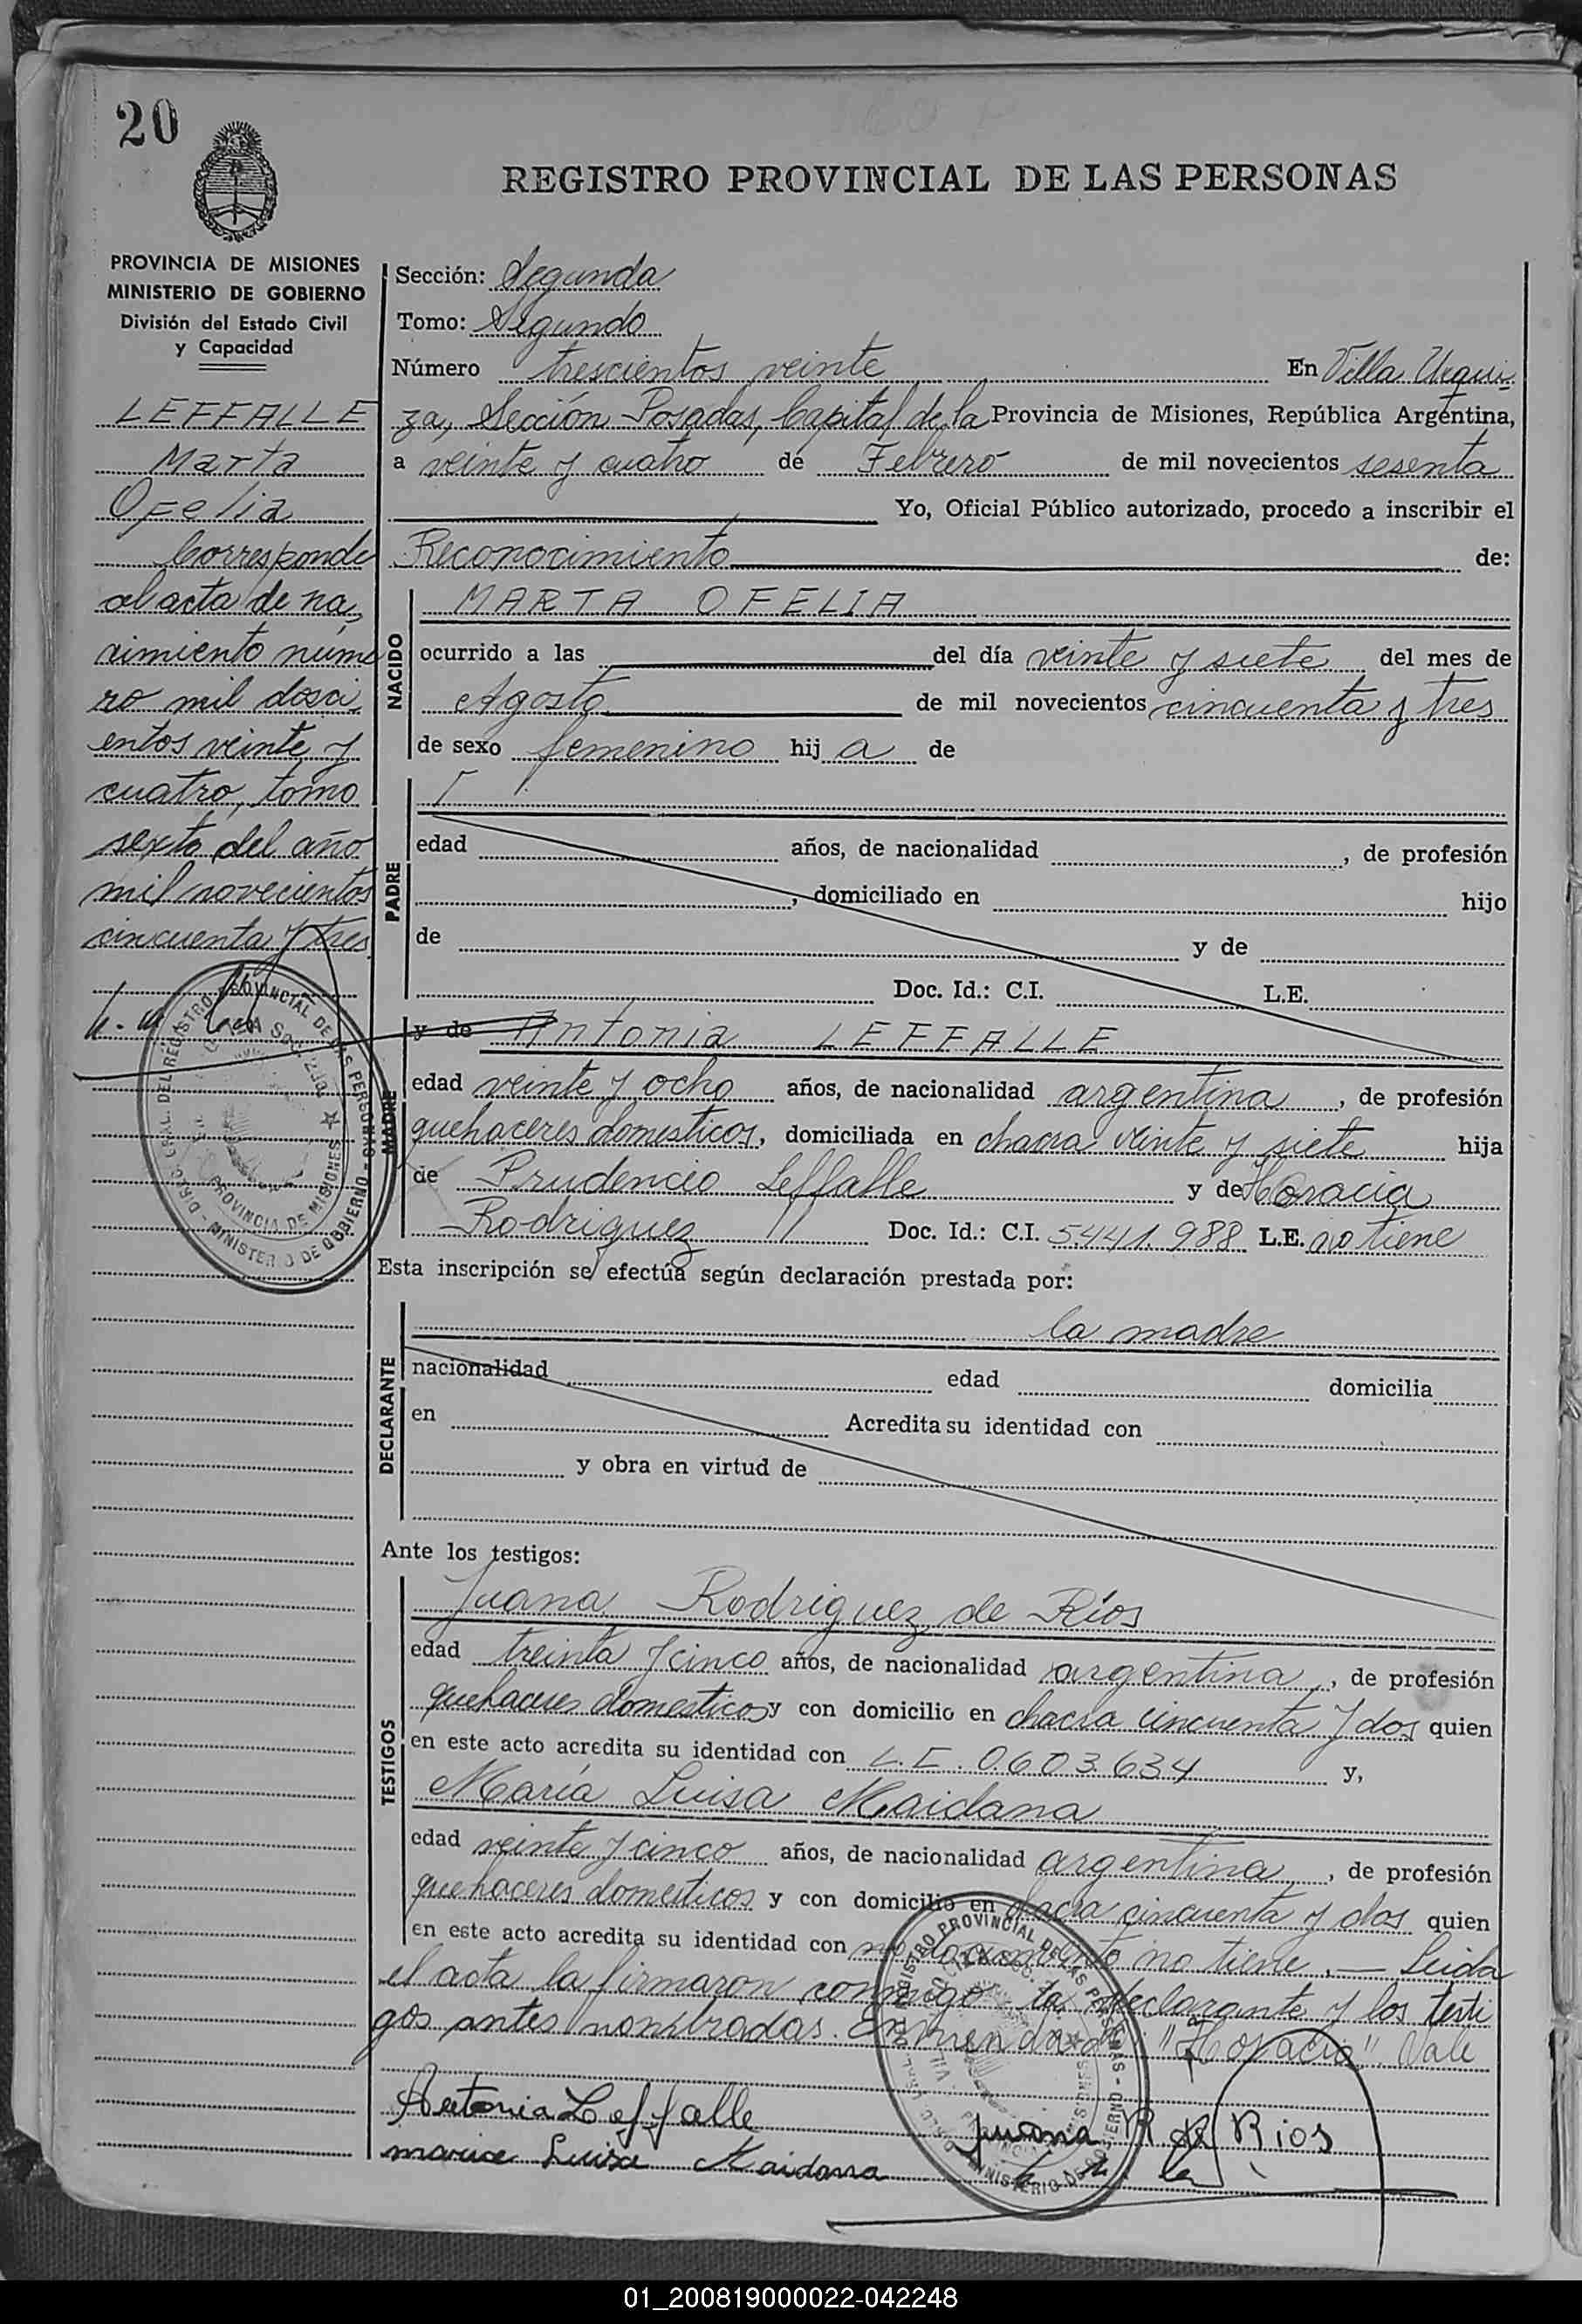 20
REGISTRO PROVINCIAL DE LAS PERSONAS
PROVINCIA DE MISIONES
MINISTERIO DE GOBIERNO
División del Estado Civil
y Capacidad
LEFFALLE
Marta
Ofelia
Corresponde
al acta de na
cimiento núme
ro mil dosci
entos veinte y
cuatro, tomo
sexto del año
mil novecientos
cincuenta y tres
Sección: Segunda
Tomo: Segundo
Número trescientos veinte En Villa Urqui
za, Sección Posadas, Capital de la Provincia de Misiones, República Argentina,
a veinte y cuatro de Febrero de mil novecientos sesenta
Yo, Oficial Público autorizado, procedo a inscribir el
Reconocimiento de:
NACIDO
MARTA OFELIA
ocurrido a las del día veinte y siete del mes de
Agosto de mil novecientos cincuenta y tres
de sexo femenino hij a de
PADRE
edad años, de nacionalidad , de profesión
, domiciliado en hijo
de y de
Doc. Id.: C.I. L.E.
MADRE
y de Antonia LEFFALLE
edad veinte y ocho años, de nacionalidad argentina, de profesión
quehaceres domesticos, domiciliada en chacra veinte y siete hija
de Prudencio Leffalle y de Horacia
Rodriguez Doc. Id.: C.I. 5.441.988 L.E. no tiene
Esta inscripción se efectúa según declaración prestada por:
DECLARANTE
la madre
nacionalidad edad domicilia
en Acredita su identidad con
y obra en virtud de
Ante los testigos:
TESTIGOS
Juana Rodriguez de Ríos
edad treinta y cinco años, de nacionalidad argentina, de profesión
quehaceres domesticos y con domicilio en chacra cincuenta y dos quien
en este acto acredita su identidad con L.C. 0.603.634 y,
María Luisa Maidana
edad veinte y cinco años, de nacionalidad argentina, de profesión
quehaceres domesticos y con domicilio en chacra cincuenta y dos quien
en este acto acredita su identidad con no tiene. — Leida
el acta la firmaron conmigo la declarante y los testi
gos antes nombradas. Enmendado: "Horacia". Vale
Antonia Leffalle
Juana R de Rios
maria Luisa Maidana
REGISTRO PROVINCIAL DE LAS PERSONAS - MINISTERIO DE GOBIERNO
PROVINCIA DE MISIONES
01_200819000022-042248